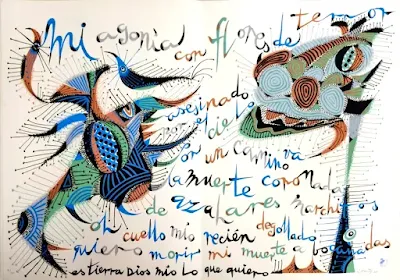 Mi agonia con flores de terror
asesinado
por el cielo
con un camino va
la muerte coronada
de azahares marchitos
oh cuello mio recien degollado
quiero morir mi muerte a bocanadas
es tierra Dios mio lo que quiero